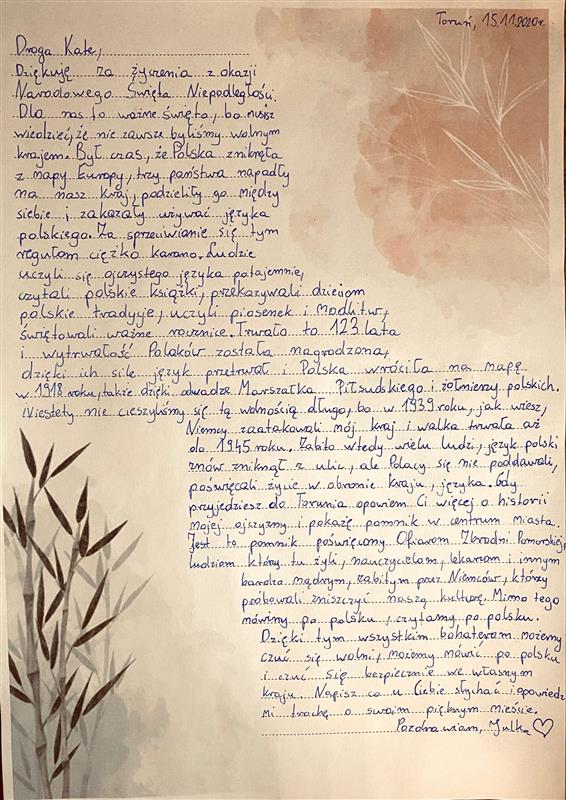 Toruń, 15.11.2020r.
Droga Kate,
Dziękuję za życzenia z okazji
Narodowego Święta Niepodległości.
Dla nas to ważne święto, bo musisz
wiedzieć, że nie zawsze byliśmy wolnym
krajem. Był czas, że Polska zniknęła
z mapy Europy, trzy państwa napadły
na nasz kraj, podzieliły go między
siebie i zakazały używać języka
polskiego. Za sprzeciwianie się tym
regułom ciężko karano. Ludzie
uczyli się ojczystego języka potajemnie,
czytali polskie książki, przekazywali dzieciom
polskie tradycje, uczyli piosenek i modlitw,
świętowali ważne rocznice. Trwało to 123 lata
i wytrwałość Polaków została nagrodzona,
dzięki ich sile język przetrwał i Polska wróciła na mapę
w 1918 roku, także dzięki odwadze Marszałka Piłsudskiego i żołnierzy polskich.
Niestety nie cieszyliśmy się tą wolnością długo, bo w 1939 roku, jak wiesz,
Niemcy zaatakowali mój kraj i walka trwała aż
do 1945 roku. Zabito wtedy wielu ludzi, język polski
znów zniknął z ulic, ale Polacy się nie poddawali,
poświęcali życie w obronie kraju, języka. Gdy
przyjedziesz do Torunia opowiem Ci więcej o historii
mojej ojczyzny i pokażę pomnik w centrum miasta.
Jest to pomnik poświęcony Ofiarom Zbrodni Pomorskiej,
ludziom którzy tu żyli, nauczycielom, lekarzom i innym
bardzo mądrym, zabitym przez Niemców, którzy
próbowali zniszczyć naszą kulturę. Mimo tego
mówimy po polsku, czytamy po polsku.
Dzięki tym wszystkim bohaterom możemy
czuć się wolni, możemy mówić po polsku
i czuć się bezpiecznie we własnym
kraju. Napisz co u Ciebie słychać i opowiedz
mi trochę o swoim pięknym mieście.
Pozdrawiam, Julka